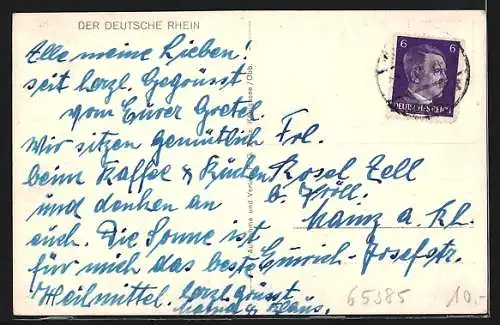 DER DEUTSCHE RHEIN
Alle meine Lieben!
seit herzl. Gegrüsst
vom Eurer Gretel.
Wir sitzen gemütlich
beim Kaffee & Kuchen
und denken an
euch. Die Sonne ist
für mich das beste
Heilmittel. herzl. Grüsst
& Klaus.
Aufnahme und Verlag
6 6
DEUTSCHES REICH
Frl.
Rosel Zell
b. Kröll.
Mainz a. Rh.
Emrich-Josefstr.
65385 10.-